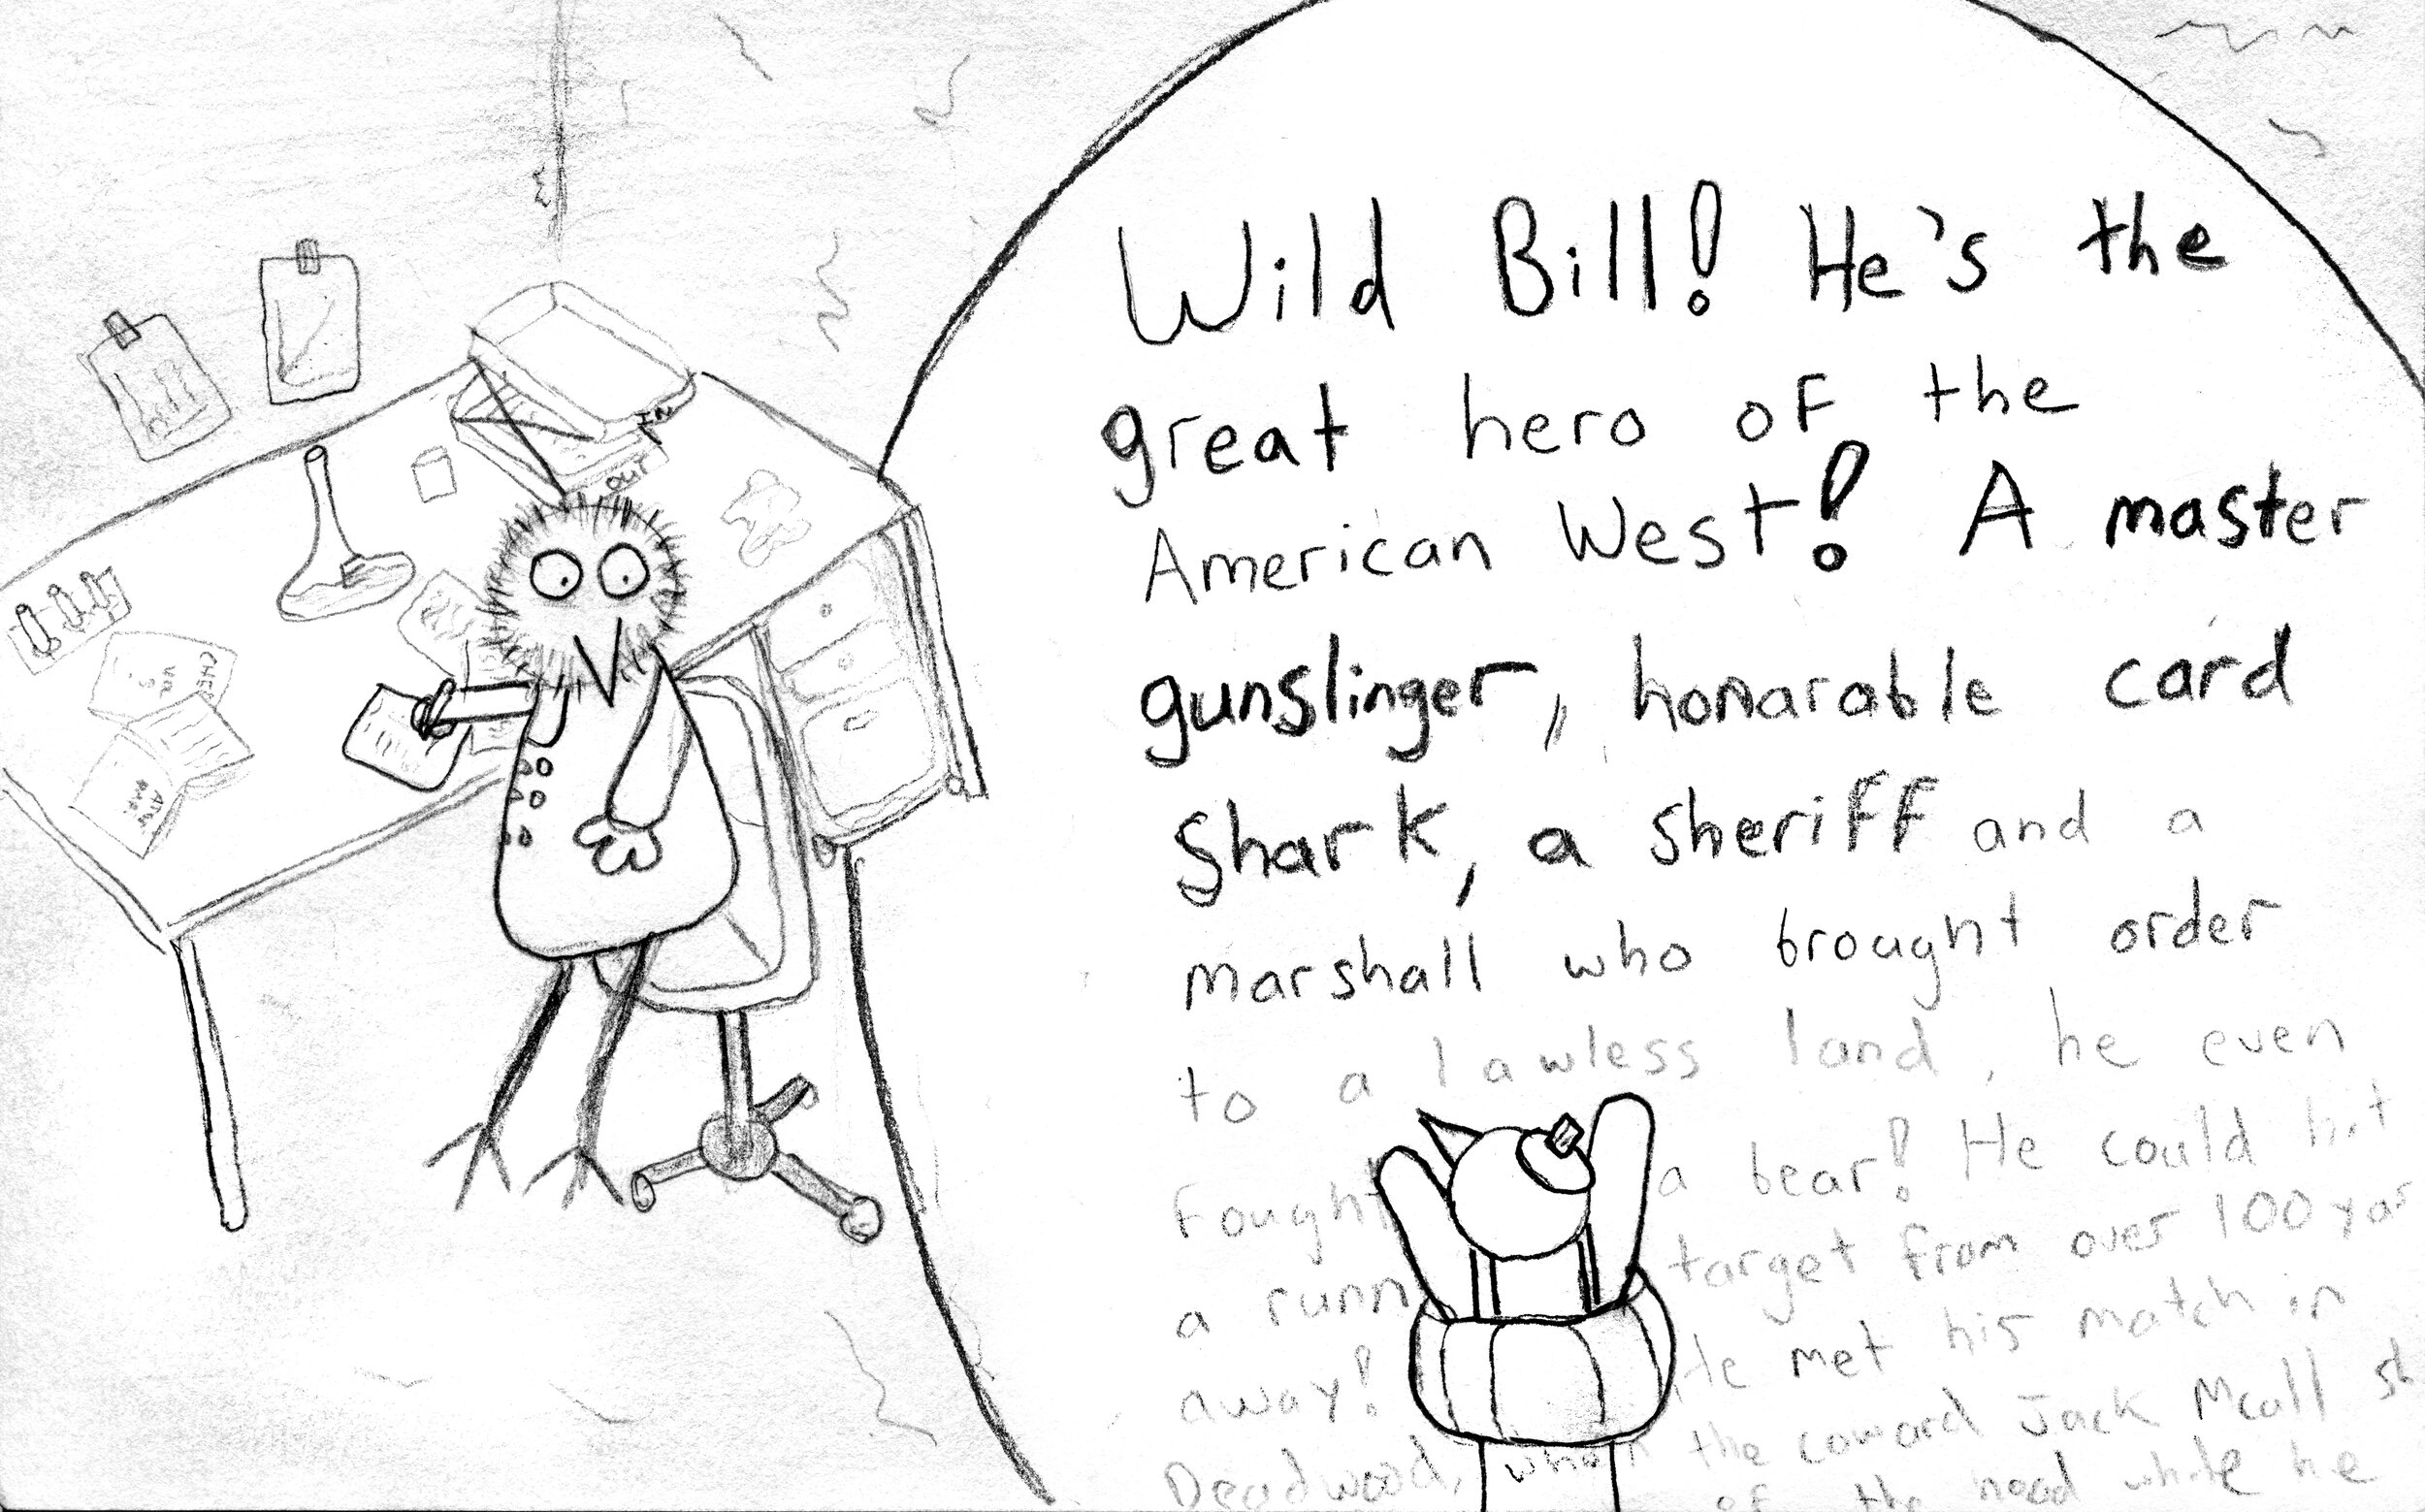 Wild Bill! He's the
great hero of the
American West! A master
gunslinger, honarable card
Shark, a sheriff and a
marshall who brought order
to a lawless land, he even
Fought a bear! He could hit
a runn target from over 100 yar
away! He met his match in
Deadwood, when the coward Jack Mcall sh
of the head while he
IN
OUT
CHEP
VOL
5